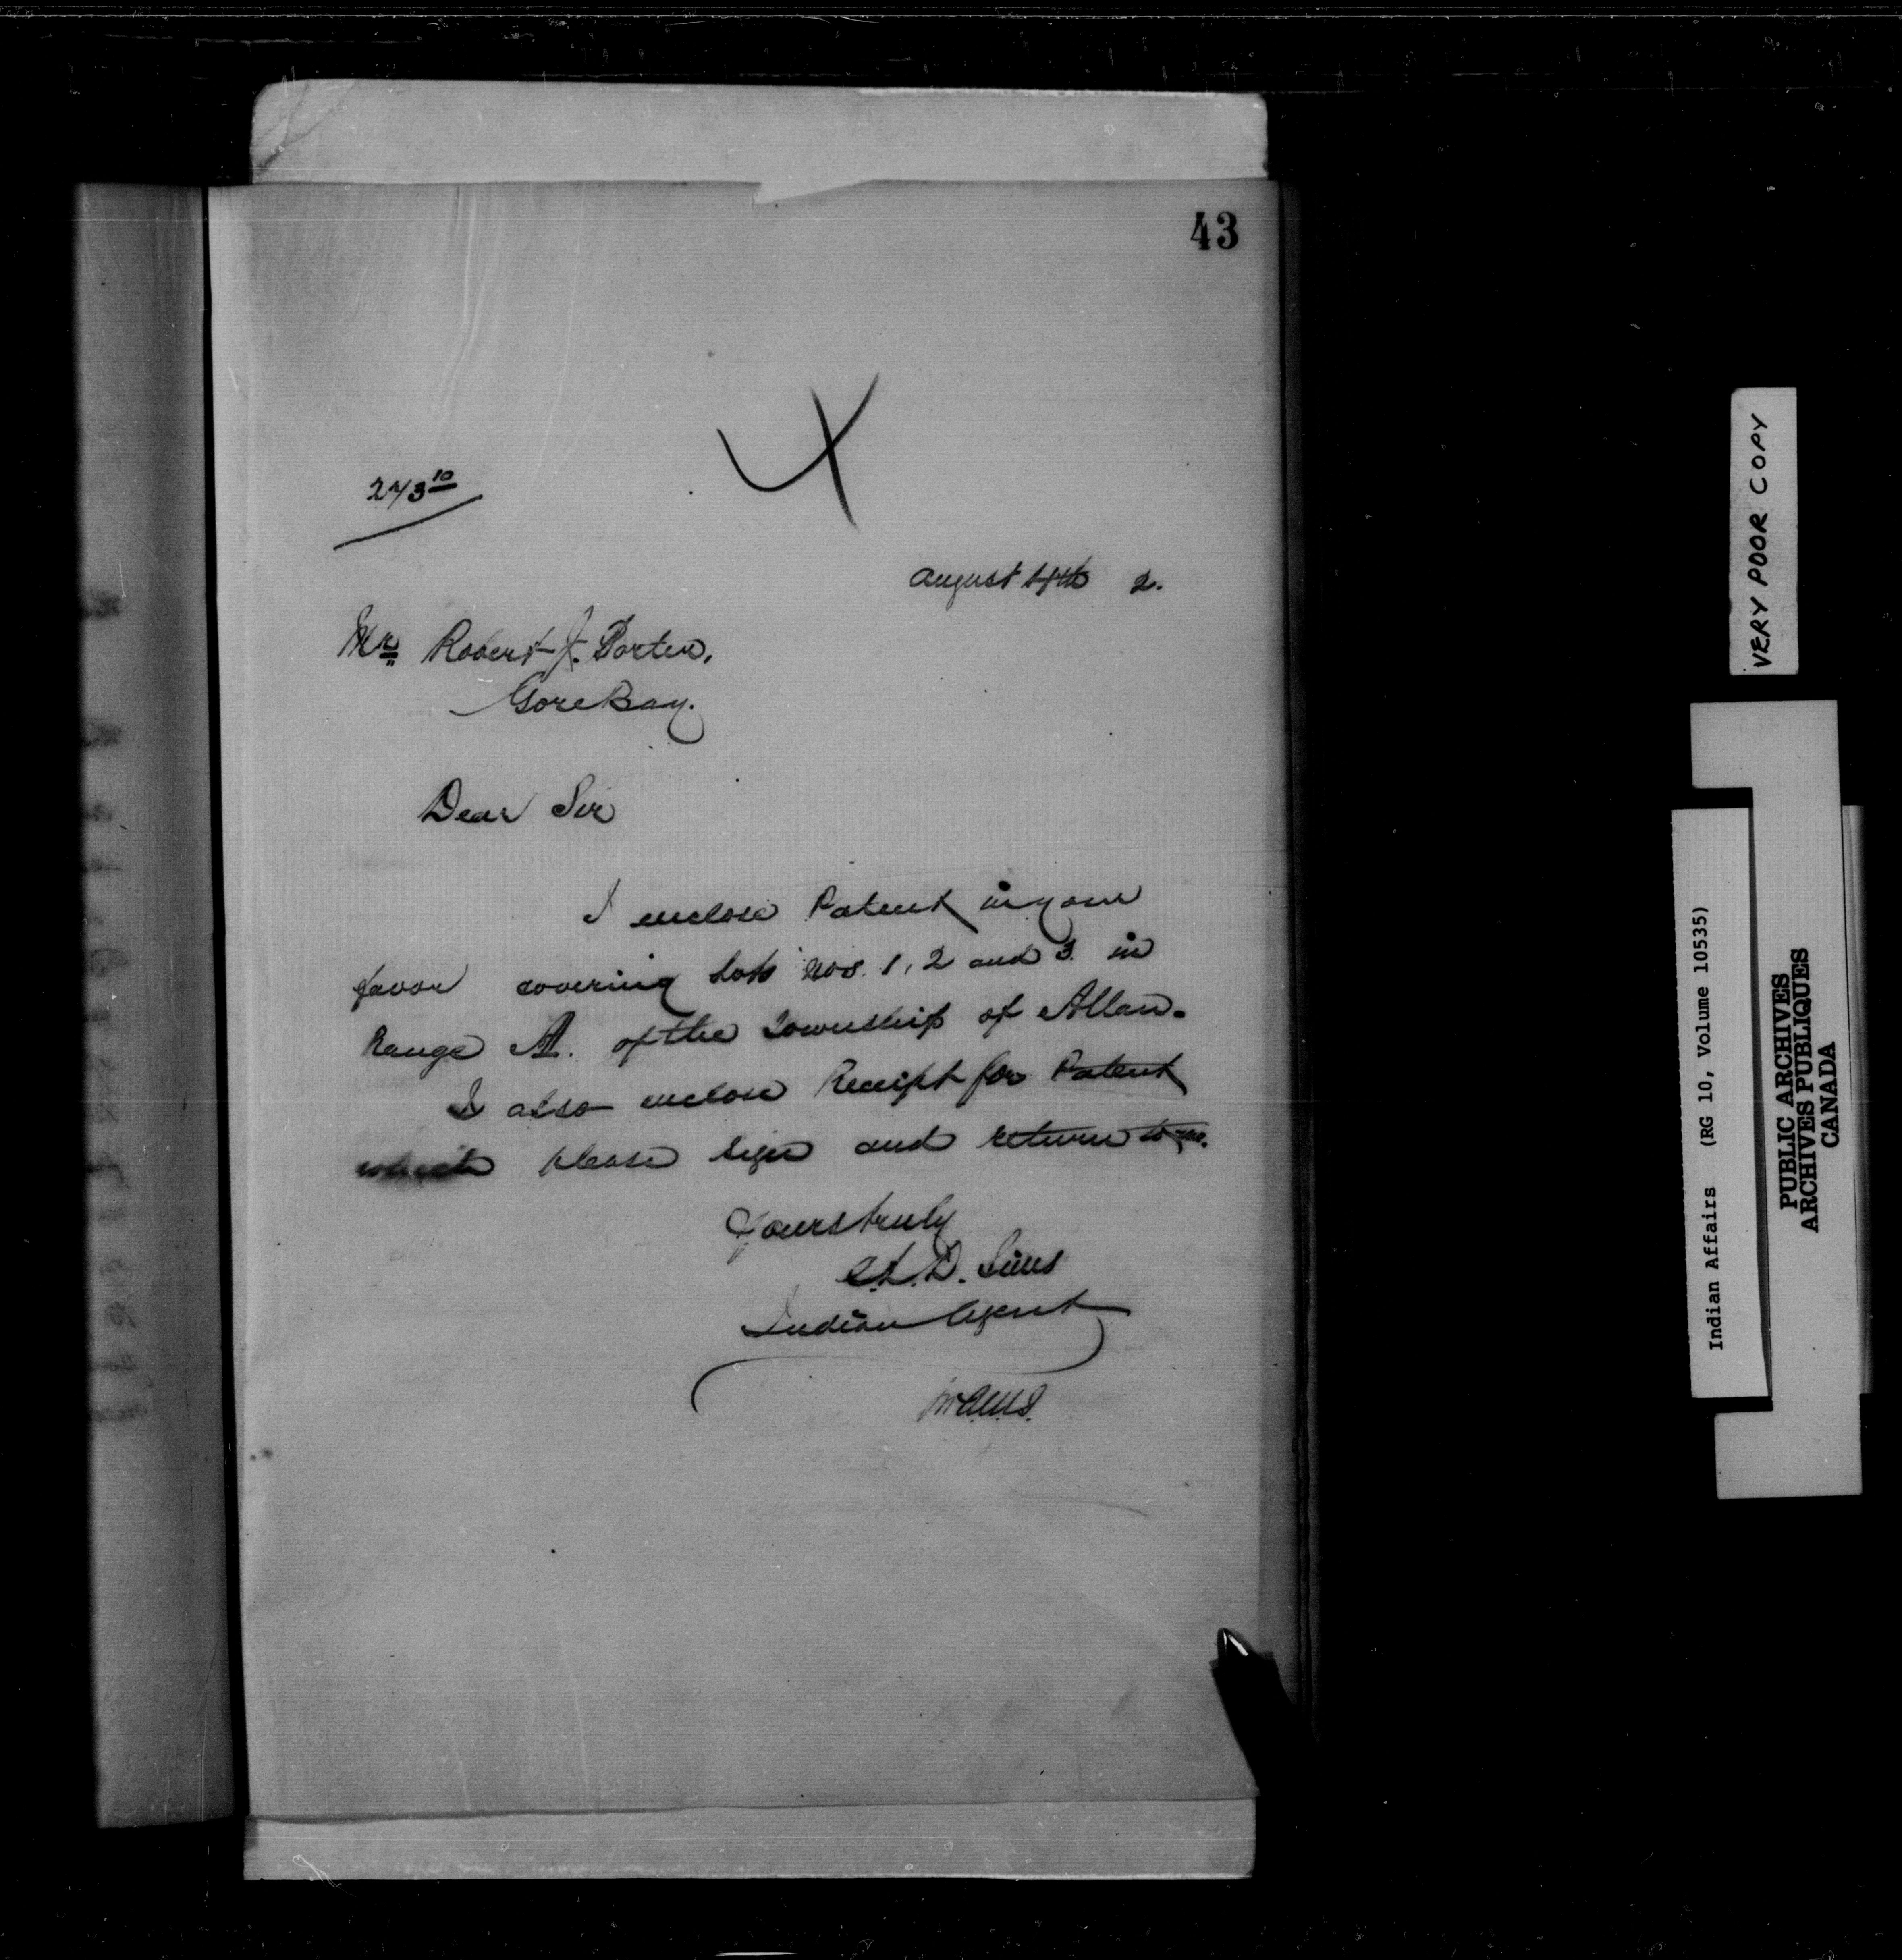 43
273 10
August 2.
Mr Robert J. Porter,
Gore Bay.
Dear Sir
I enclose Patent in your
favor covering Lots Nos. 1, 2 and 3 in
Range A. of the Township of Allan.
I also enclose Receipt for Patent
which please sign and return to me.
Yours truly
D. Sims
Indian Agent
VERY POOR COPY
Indian Affairs (RG 10, Volume 10535)
PUBLIC ARCHIVES
ARCHIVES PUBLIQUES
CANADA